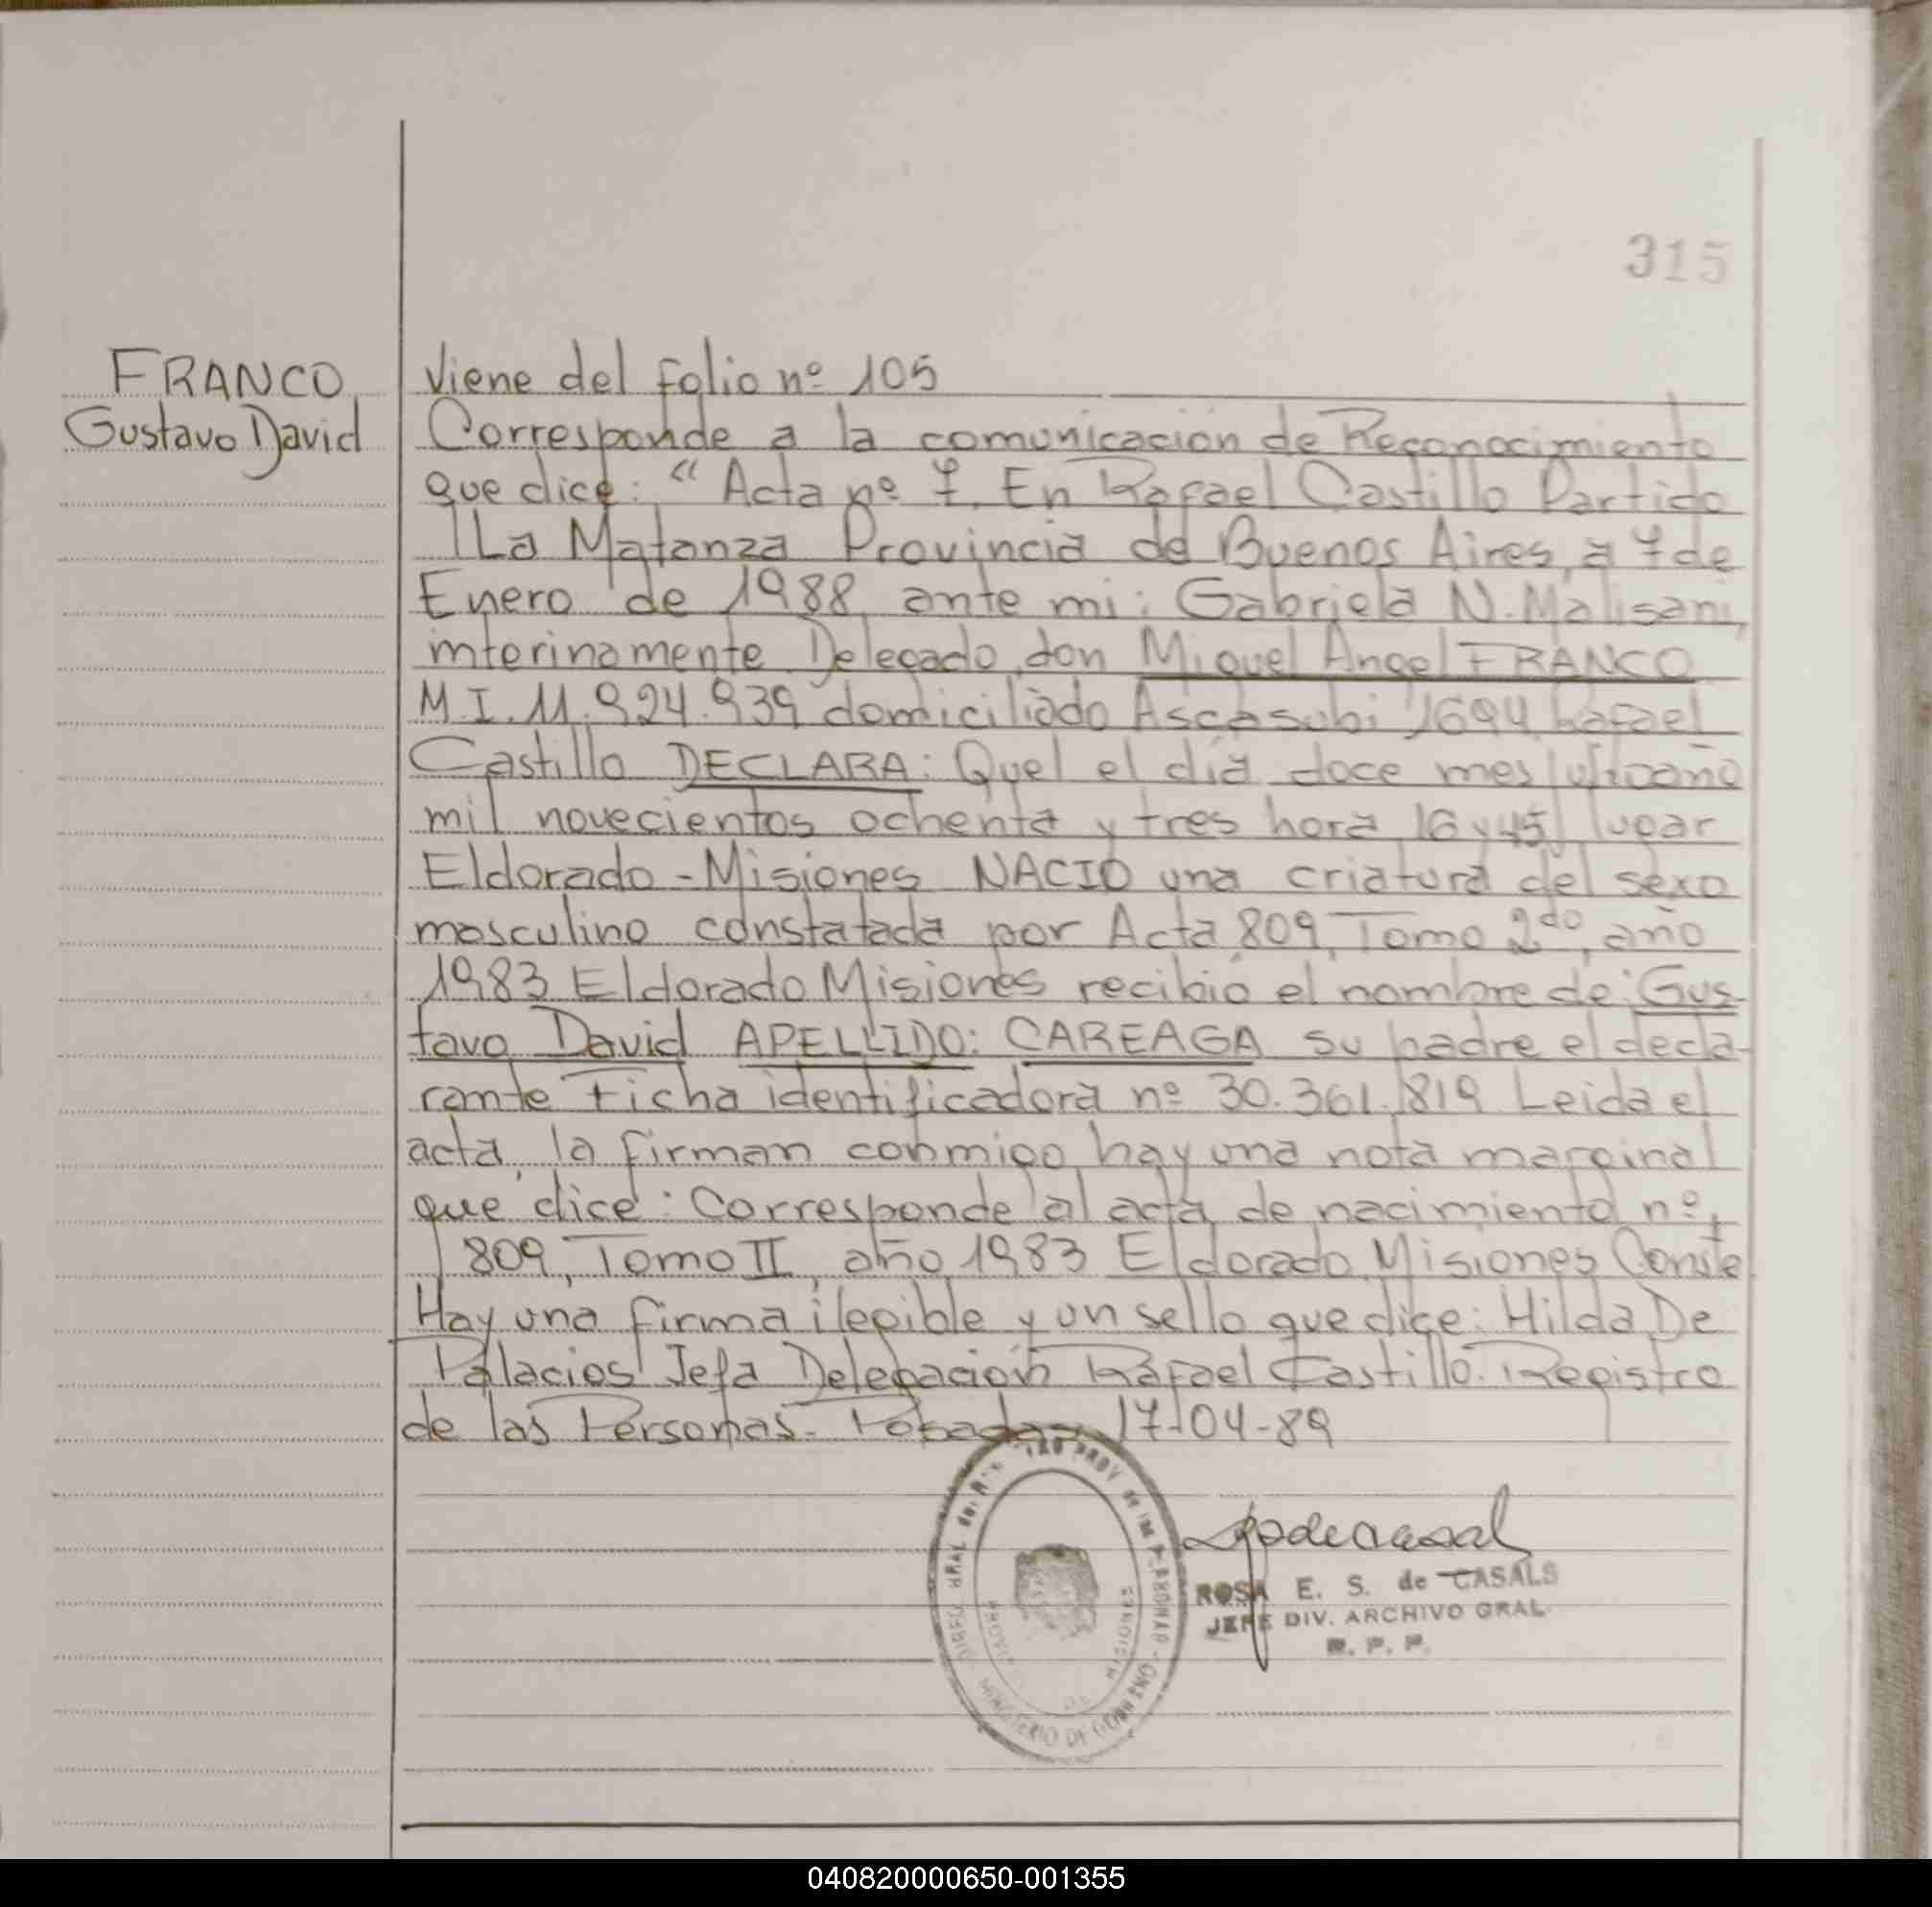 315
FRANCO
Gustavo David
Viene del folio nº 105
Corresponde a la comunicación de Reconocimiento
que dice: “Acta nº 7. En Rafael Castillo Partido
La Matanza Provincia de Buenos Aires, a 7 de
Enero de 1988, ante mi: Gabriela N. Malisani,
interinamente Delegado, don Miguel Angel FRANCO
M.I. 11.924.939 domiciliado Ascasubi 1694 Rafael
Castillo DECLARA: Quel el día doce mes año
mil novecientos ochenta y tres hora 16 y 45 lugar
Eldorado - Misiones NACIO una criatura del sexo
masculino constatada por Acta 809, Tomo 2do, año
1983 Eldorado Misiones recibió el nombre de: Gus-
tavo David APELLIDO: CAREAGA su padre el decla-
rante Ficha identificadora nº 30.361.819 Leida el
acta, la firman conmigo, hay una nota marginal
que dice: Corresponde al acta de nacimiento nº
809, Tomo II, año 1983 Eldorado, Misiones Conste
Hay una firma ilegible y un sello que dice: Hilda De
Palacios Jefa Delegación Rafael Castillo. Registro
de las Personas. Posadas, 17-04-89
ROSA E. S. de CASALS
JEFE DIV. ARCHIVO GRAL.
MINISTERIO DE GOBIERNO
MISIONES
040820000650-001355